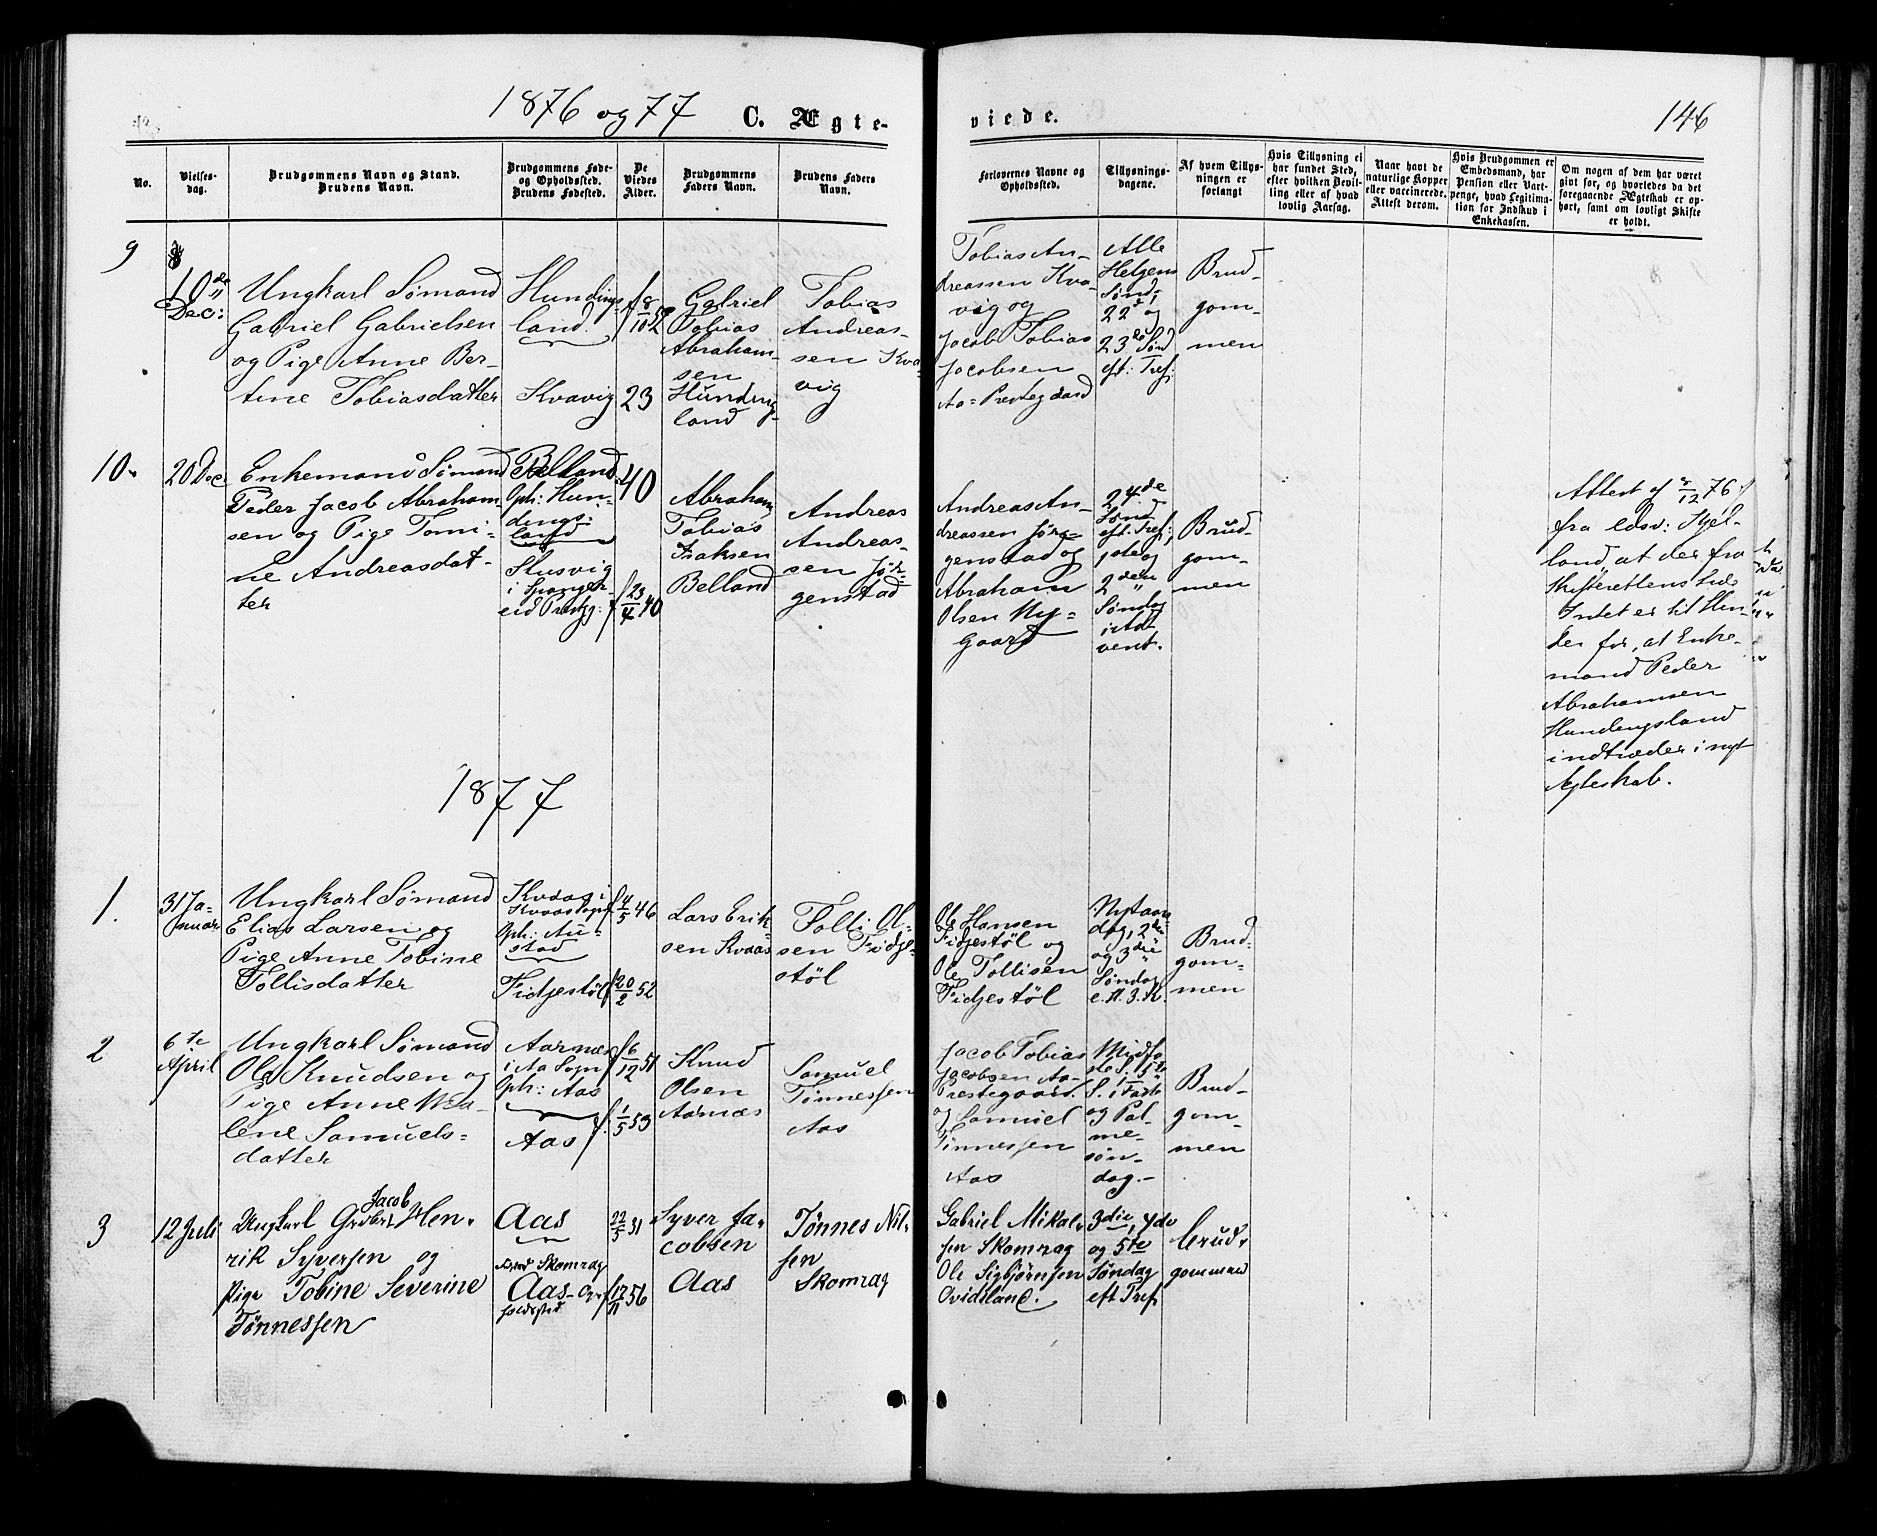 1876 og 77
C. Ægte-
viede.
146
No.
Vielses-
dag.
Brudgommens Navn og Stand.
Brudens Navn.
Brudgommens Føde-
og Opholdssted.
Brudens Fødested.
De
Viedes
Alder.
Brudgommens
Faders Navn.
Brudens Faders
Navn.
Forlovernes Navne og
Opholdssted.
Tillysnings-
dagene.
Af hvem Tillys-
ningen er
forlangt
Hvis Tillysning ei
har fundet Sted,
efter hvilken Bevil-
ling eller af hvad
lovlig Aarsag.
Naar havt de
naturlige Kopper
eller vaccinerede.
Attest derom.
Hvis Brudgommen er
Embedsmand, har
Pension eller Vart-
penge, hvad Legitima-
tion for Indskud i
Enkekassen.
Om nogen af dem har været
gift før, og hvorledes da det
foregaaende Ægteskab er op-
hørt, samt om lovligt Skifte
er holdt.
9
10de
Dec:
Ungkarl Sømand
Gabriel Gabrielsen
og Pige Anne Ber-
tine Tobiasdatter
Hundings-
land.
Kvavig
f 8/10 52
23
Gabriel
Tobias
Abraham-
sen
Hundings-
land
Tobias
Andreas-
sen Kva-
vig
Tobias An-
dreassen Kva-
vig og
Jacob Tobias
Jacobsen
Aa-Prestegaard
Alle
Helgens
Sønd:
22de og
23de Sønd
eft: Tref:
Brud-
gom-
men
10.
20 Dec
Enkemand Sømand
Peder Jacob Abraham-
sen og Pige Tomi-
ne Andreasdat-
ter
Belland
Oph: Hun-
dings-
land
Husvig
i Spanger-
eid Prestg:
40
f 23/4 40
Abraham
Tobias
Isaksen
Belland
Andreas
Andreas-
sen Jör-
genstad
Andreas An-
dreassen Jörg-
genstad og
Abraham
Olsen Ny-
gaard
24de
Sønd
eft: Tref:,
1ste og
2den
Søndag
i Ad-
vent.
Brud-
gom-
men
Attest af 5/12 76
fra Edsv: Kjel-
land, at der fra
Skifterettens Side
Intet er til Hin-
der for, at Enke-
mand Peder
Abrahamsen
Hundingsland
indtræder i nyt
Ægteskab.
1877
1.
31 Ja-
nuar
Ungkarl Sømand
Elias Larsen og
Pige Anne Tobine
Tollisdatter
Kvaas i
Kvaas Sogn
Oph: Au-
stad
Fidjestöl
f 4/5 46
f 20/2 52
Lars Erik-
sen Kvaas
Tolli Ol-
sen Fidje-
stöl
Ole Hansen
Fidjestöl og
Ole Tollisen
Fidjestöl
Nytaars
dag, 2den
og 3die
Søndag
e. H. 3. K.
Brud-
gom-
men
2
6te
April
Ungkarl Sømand
Ole Knudsen og
Pige Anne Ma-
lene Samuels-
datter
Aarnæs
i Aa Sogn
Oph: Aas
Aas
f 6/12 51
f. 1/5 53
Knud
Olsen
Aarnæs
Samuel
Tönnessen
Aas
Jacob Tobias
Jacobsen Aa-
Prestegaard
og Samuel
Tönnessen
Aas
Midfa-
ste S. 5te
S. i Faste
og Pal-
me-
søn-
dag.-
Brud-
gom-
men
3
12 Juli
Jacob
Ungkarl Hen-
rik Syversen og
Pige Tobine Severine
Tönnessen
Aas
Skomrag
Aas-Op-
holdssted
22/5 31
f 17/11 56
Syver Ja-
cobsen
Aas
Tönnes Nil-
sen
Skomrag
Gabriel Mikal-
sen Skomrag
Ole Sigbjörnsen
Ovidsland.
3die, 4de
og 5te
Søndag
eft Tref
Brud-
gommen